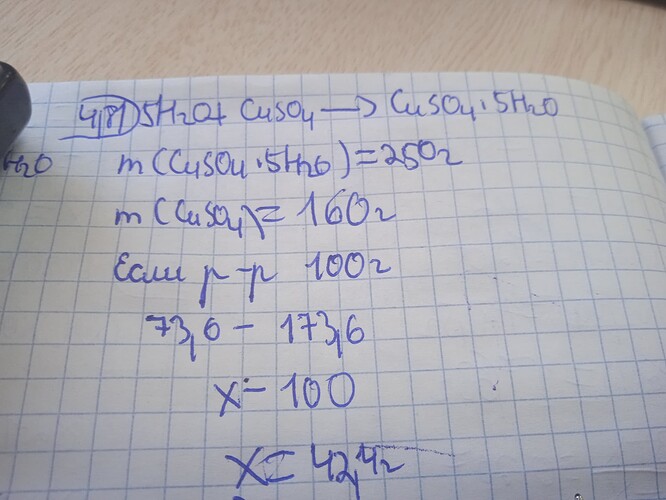 4,81) 5H₂O + CuSO₄ → CuSO₄·5H₂O
H₂O
m(CuSO₄·5H₂O) = 250г
m(CuSO₄) = 160г
Если р-р 100г
73,6 - 173,6
x - 100
x = 42,4г